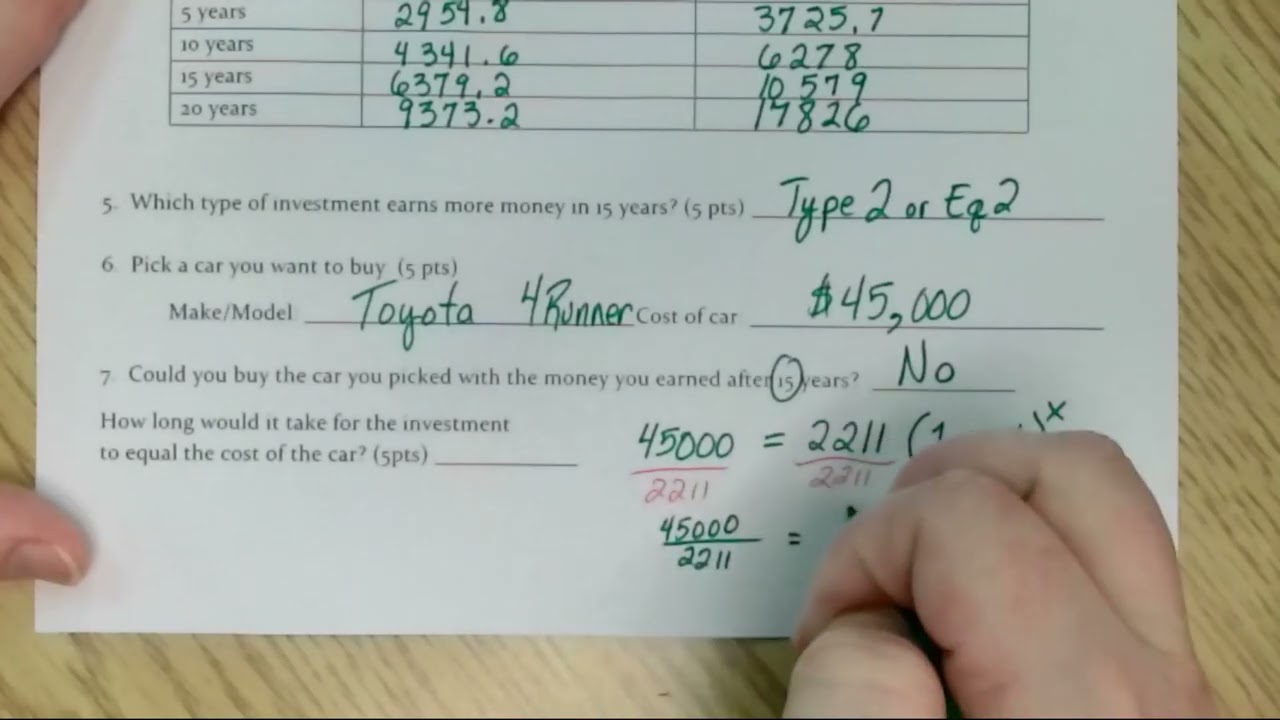 5 years 2954.8 3725.7
10 years 4341.6 6278
15 years 6379.2 10579
20 years 9373.2 17826
5. Which type of investment earns more money in 15 years? (5 pts) Type 2 or Eq 2
6. Pick a car you want to buy (5 pts)
Make/Model Toyota 4Runner Cost of car $45,000
7. Could you buy the car you picked with the money you earned after 15 years? No
How long would it take for the investment
to equal the cost of the car? (5pts)
45000 = 2211 (1 )x
2211 2211
45000 =
2211